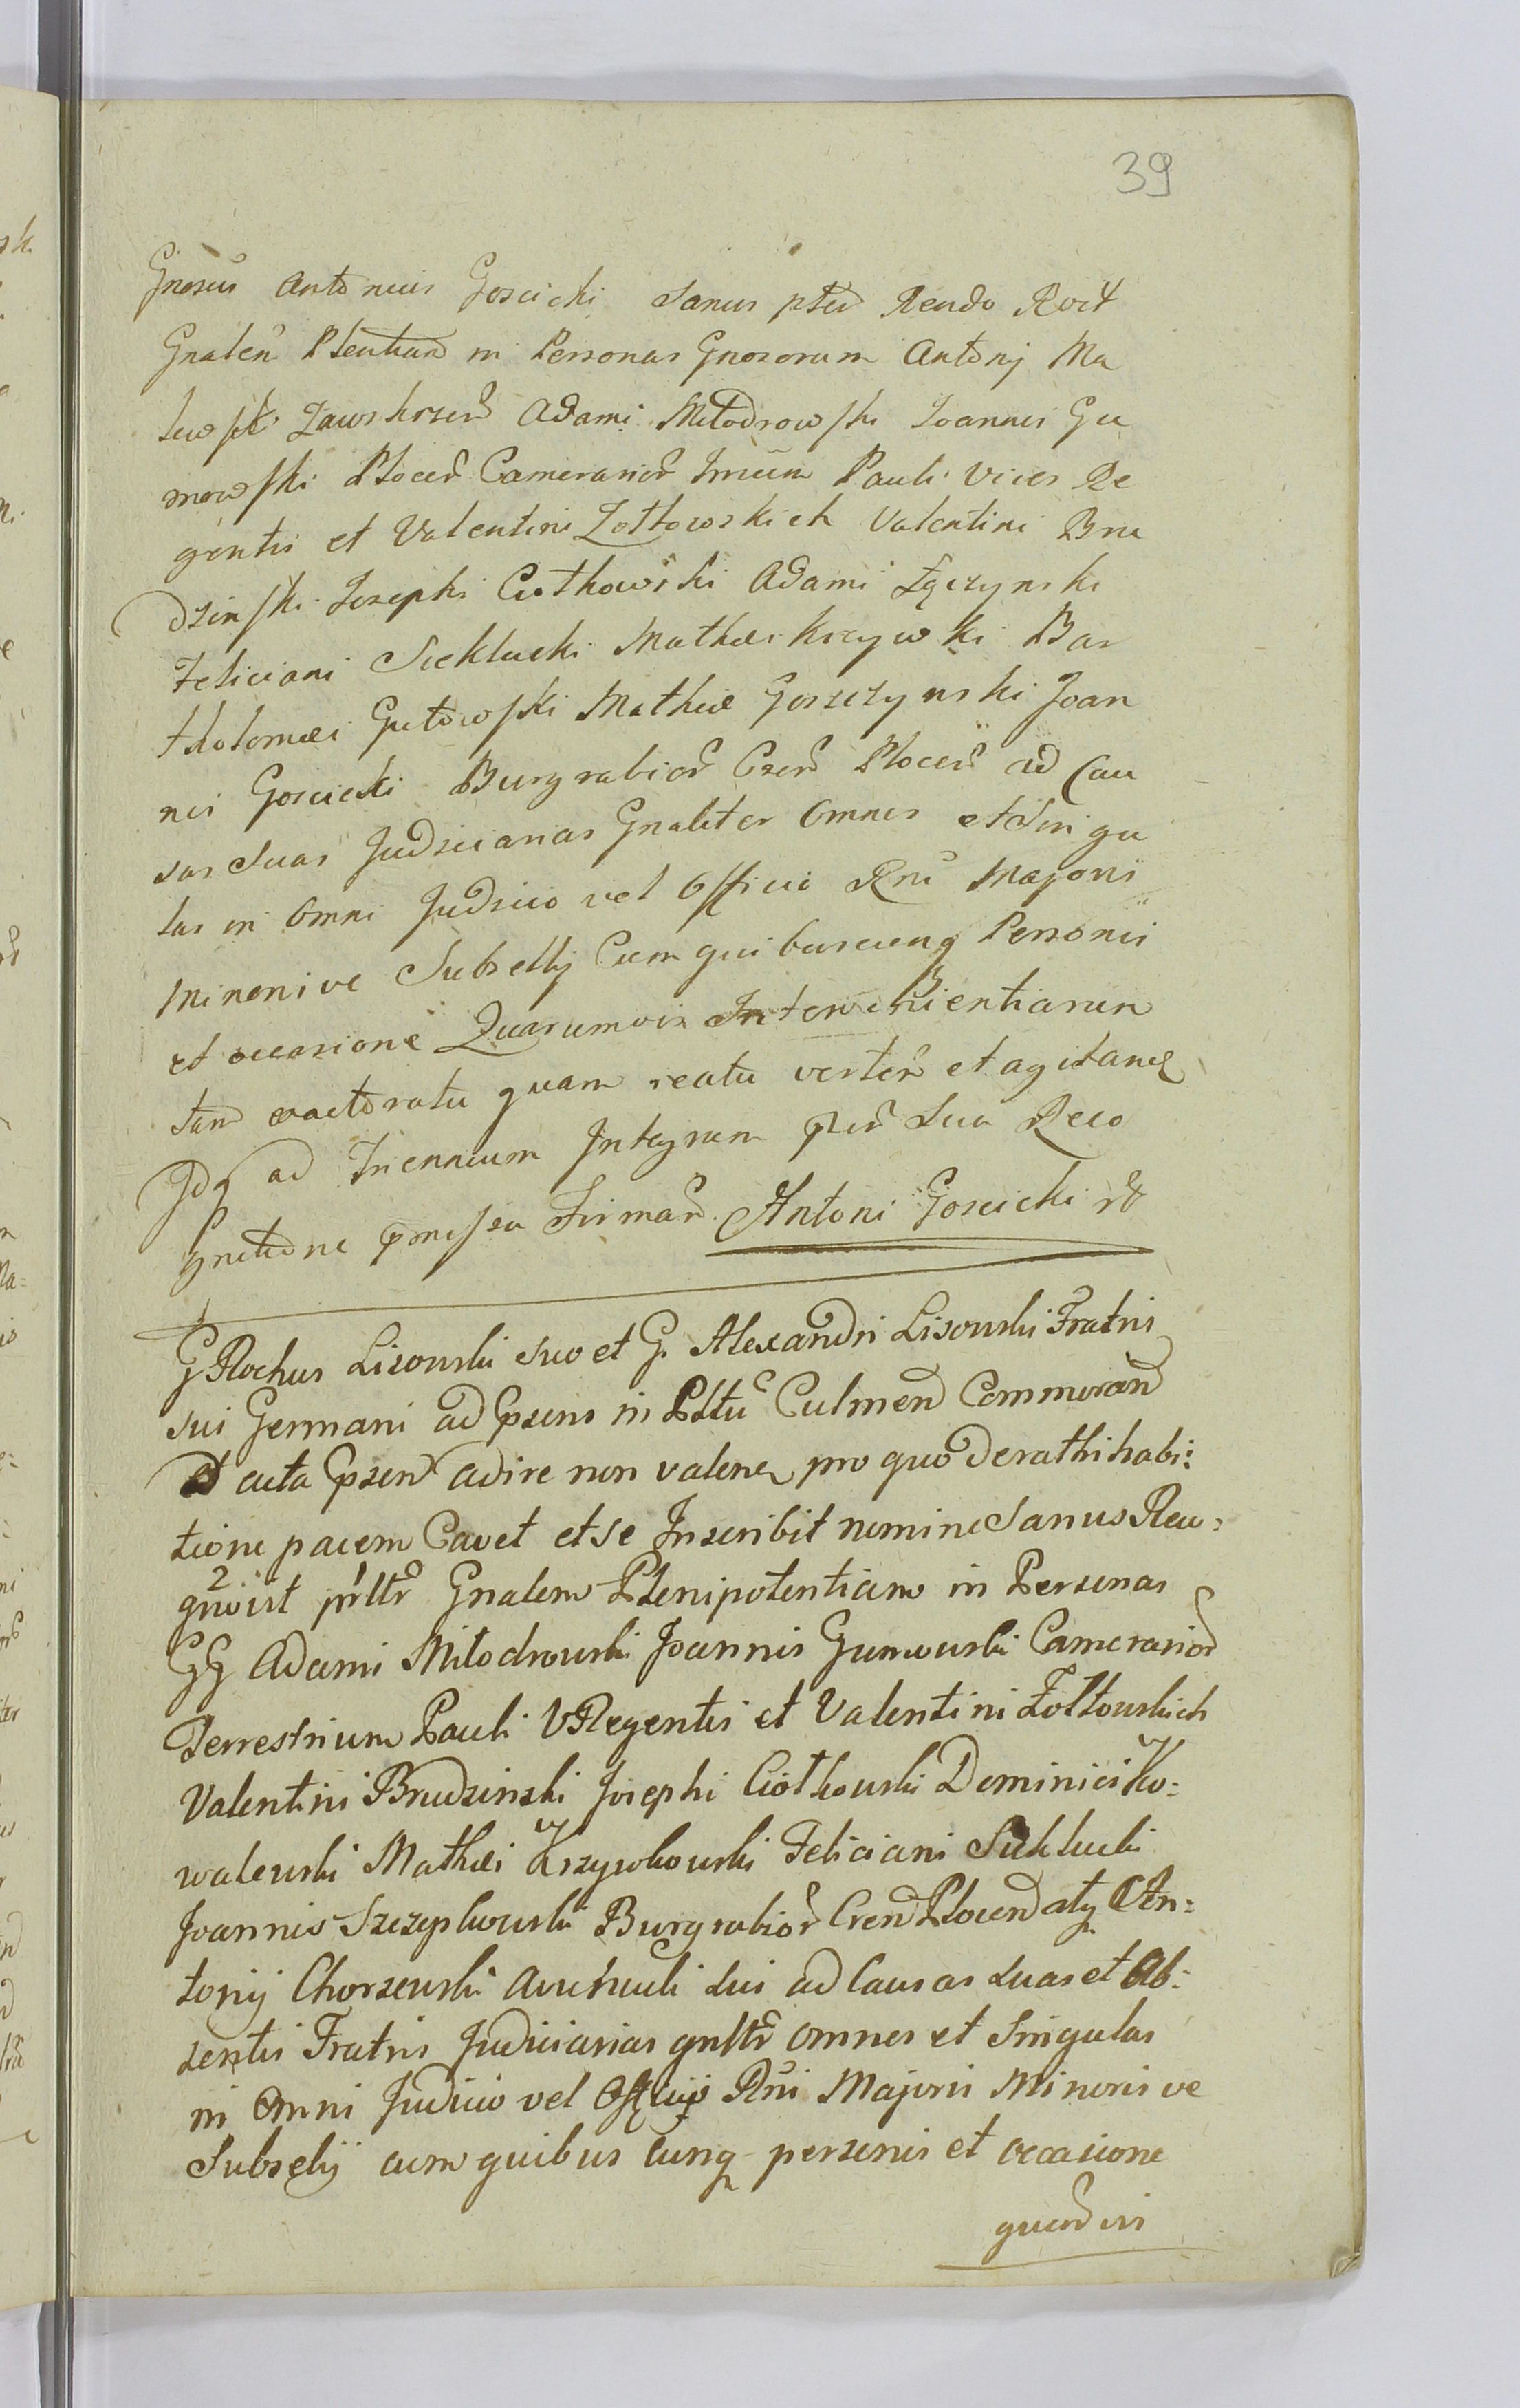 39
Gnosus Antonius Goscicki Sanus pter Rendo Roit
Gnalem Pleutiam in Personas Gnosorum Antonj Ma
lewski Zawskrzen Adami Miłodrowski Joannis Gu
mowski Plocen Camerarior Pauli Vices Re
gentis et Valentini Zołtowskich Valentini Bru
dzinski Josephi Ciołkowski Adami Łączynski
Feliciani Sieklucki Mathei Krzywki Bar
tholomæi Gutowski Mathiæ Goszczynski Joan
nis Goscicki Burgrabior Csen Plocen ad Cau
sas Suas Judiciarias Gnaliter Omnes et Singu
las in Omni Judicio vel Officio Rni Majoris
Minorisve Subsellij Cum quibuscunq Personis
et occasione Quarumvis Intervenientiarum
tam actoratu quam reatu verten et agitand
Idq ad Triennium Integrum pter Sua Reco
gnitione pmissa Firman Antoni Goscicki
G Rochus Lisowski suo et G. Alexandri Lisowski Fratris
sui Germani ad Psens in Pltu Culmen Commoran
et acta Psen adire non valen pro quo de rathihabi:
tione pacem Cavet et se Inscribit nomine Sanus Reco:
gnovit prltr Gnalem Plenipotentiam in Personas
GG Adami Miłodrowski Joannis Gumowski Camerarior
Terrestrium Pauli V Regentis et Valentini Zołtowskich
Valentini Brudzinski Josephi Ciołkowski Dominici Ko:
walewski Mathei Krzywkowski Feliciani Sieklucki
Joannis Szczepkowski Burgrabior Cren Plocen atq An:
tonij Chorzewski Avunculi sui ad Causas suas et Ab:
sentis Fratris Judiciarias gnltr omnes et Singulas
in Omni Judicio vel Offcio Rni Majoris Minorisve
Subselij cum quibus cunq personis et occasione
quorvis